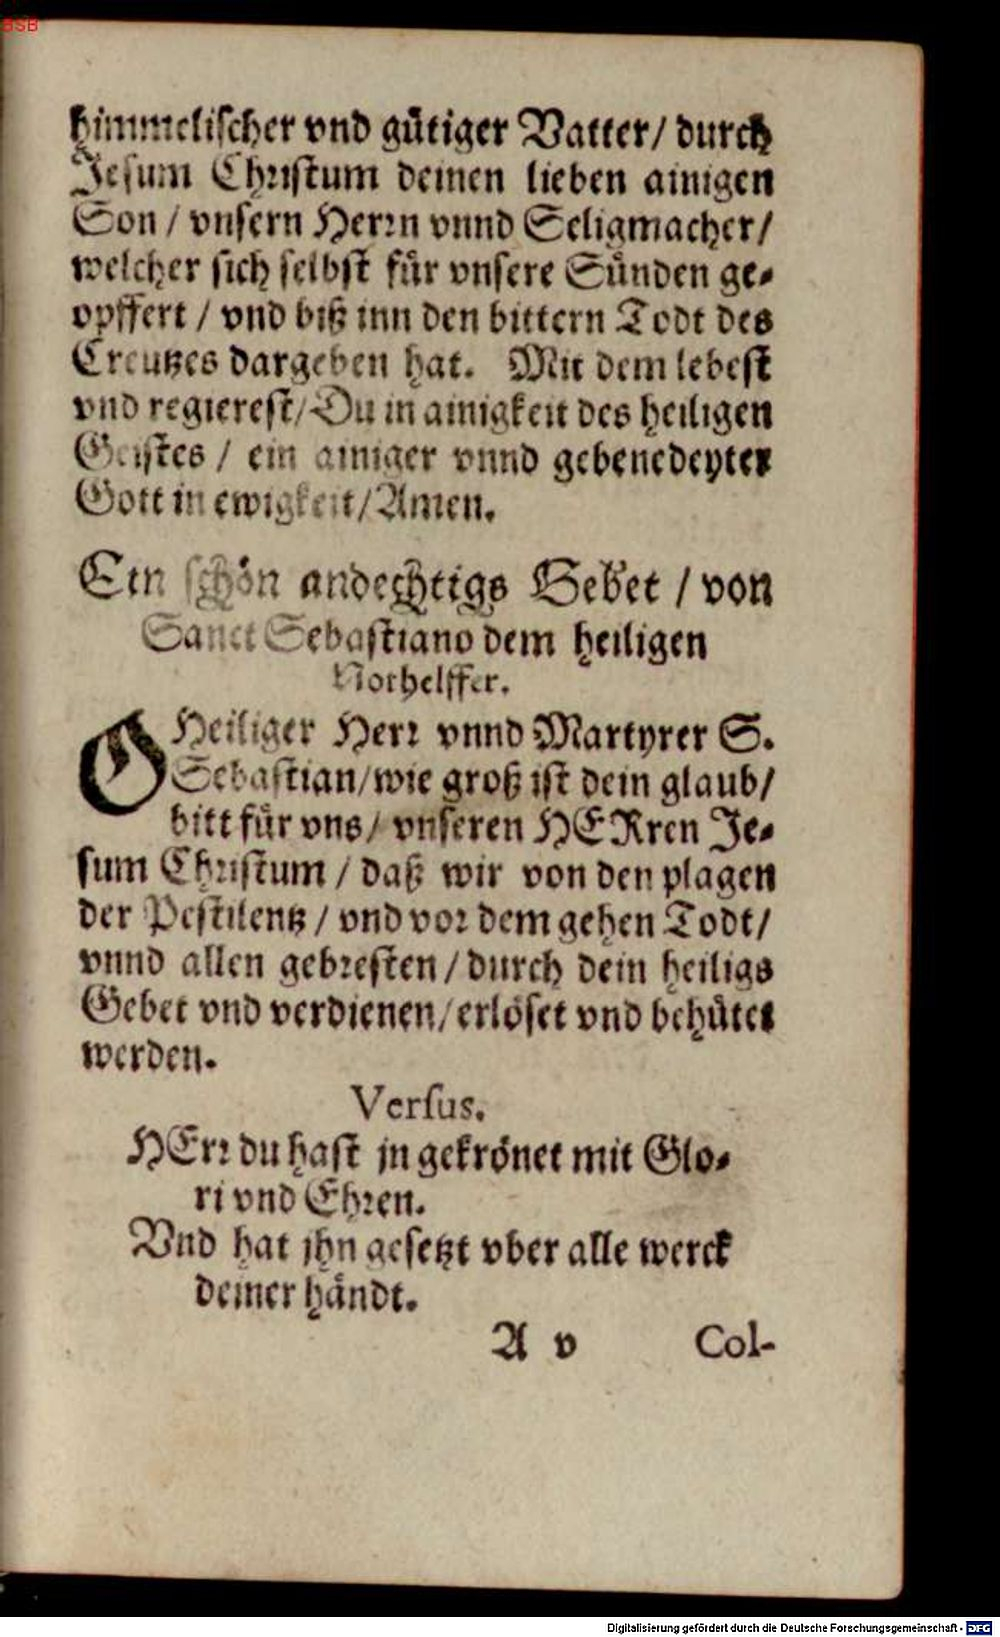 BSB
himmelischer vnd gütiger Vatter/ durch
Jesum Christum deinen lieben ainigen
Son / vnsern Herrn vnnd Seligmacher/
welcher sich selbst für vnsere Sünden ge-
opffert / vnd biß inn den bittern Todt des
Creutzes dargeben hat. Mit dem lebest
vnd regierest/Du in ainigkeit des heiligen
Geistes / ein ainiger vnnd gebenedeyter
Gott in ewigkeit/Amen.
Ein schön andechtigs Gebet / von
Sanct Sebastiano dem heiligen
Nothelffer.
O Heiliger Herr vnnd Martyrer S.
Sebastian/wie groß ist dein glaub/
bitt für vns/ vnseren HERren Je-
sum Christum / daß wir von den plagen
der Pestilentz / vnd vor dem gehen Todt/
vnnd allen gebresten / durch dein heiligs
Gebet vnd verdienen/erlöset vnd behütet
werden.
Versus.
HErr du hast jn gekrönet mit Glo-
ri vnd Ehren.
Vnd hat jhn gesetzt vber alle werck
deiner händt.
A v Col-
Digitalisierung gefördert durch die Deutsche Forschungsgemeinschaft - DFG